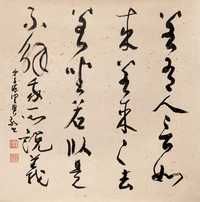 若有人言如
來若來若去
若坐若臥是
不解我所說義